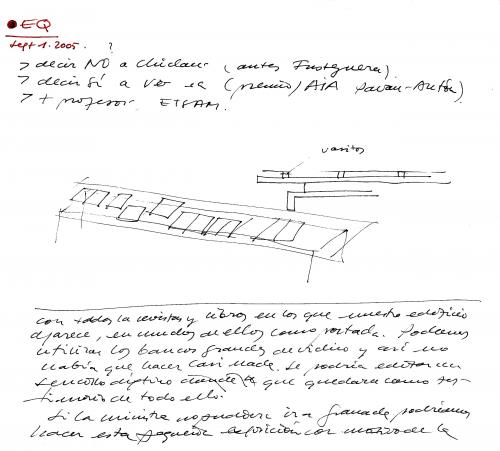 • EQ
sept 1. 2005. ?
> decir NO a Chiclana (antes Fustegueras)
> decir Sí a Ver ea (premio) AIA
> + profesor ETSAM.
varitos
con todas la revistas y libros en los que nuestro edificio
aparece, en muchos de ellos como portada. Podemos
utilizar los bancos grandes de vidrio y así no
habría que hacer casi nada. Se podría editar un
sencillo díptico donde que quedara como tes-
timonio de todo ello.
Si la ministra no pudiera ir a Granada, podríamos
hacer esta pequeña exposición con motivo de la